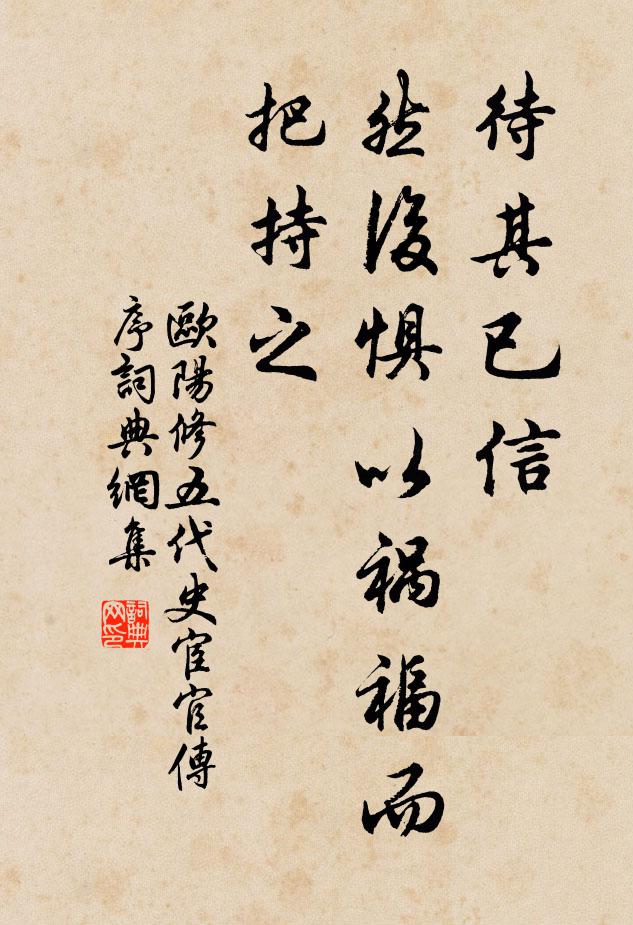 待其已信
然後惧以禍福而
把持之
歐陽修五代史宦官傳
序詞典網集
詞典
网印